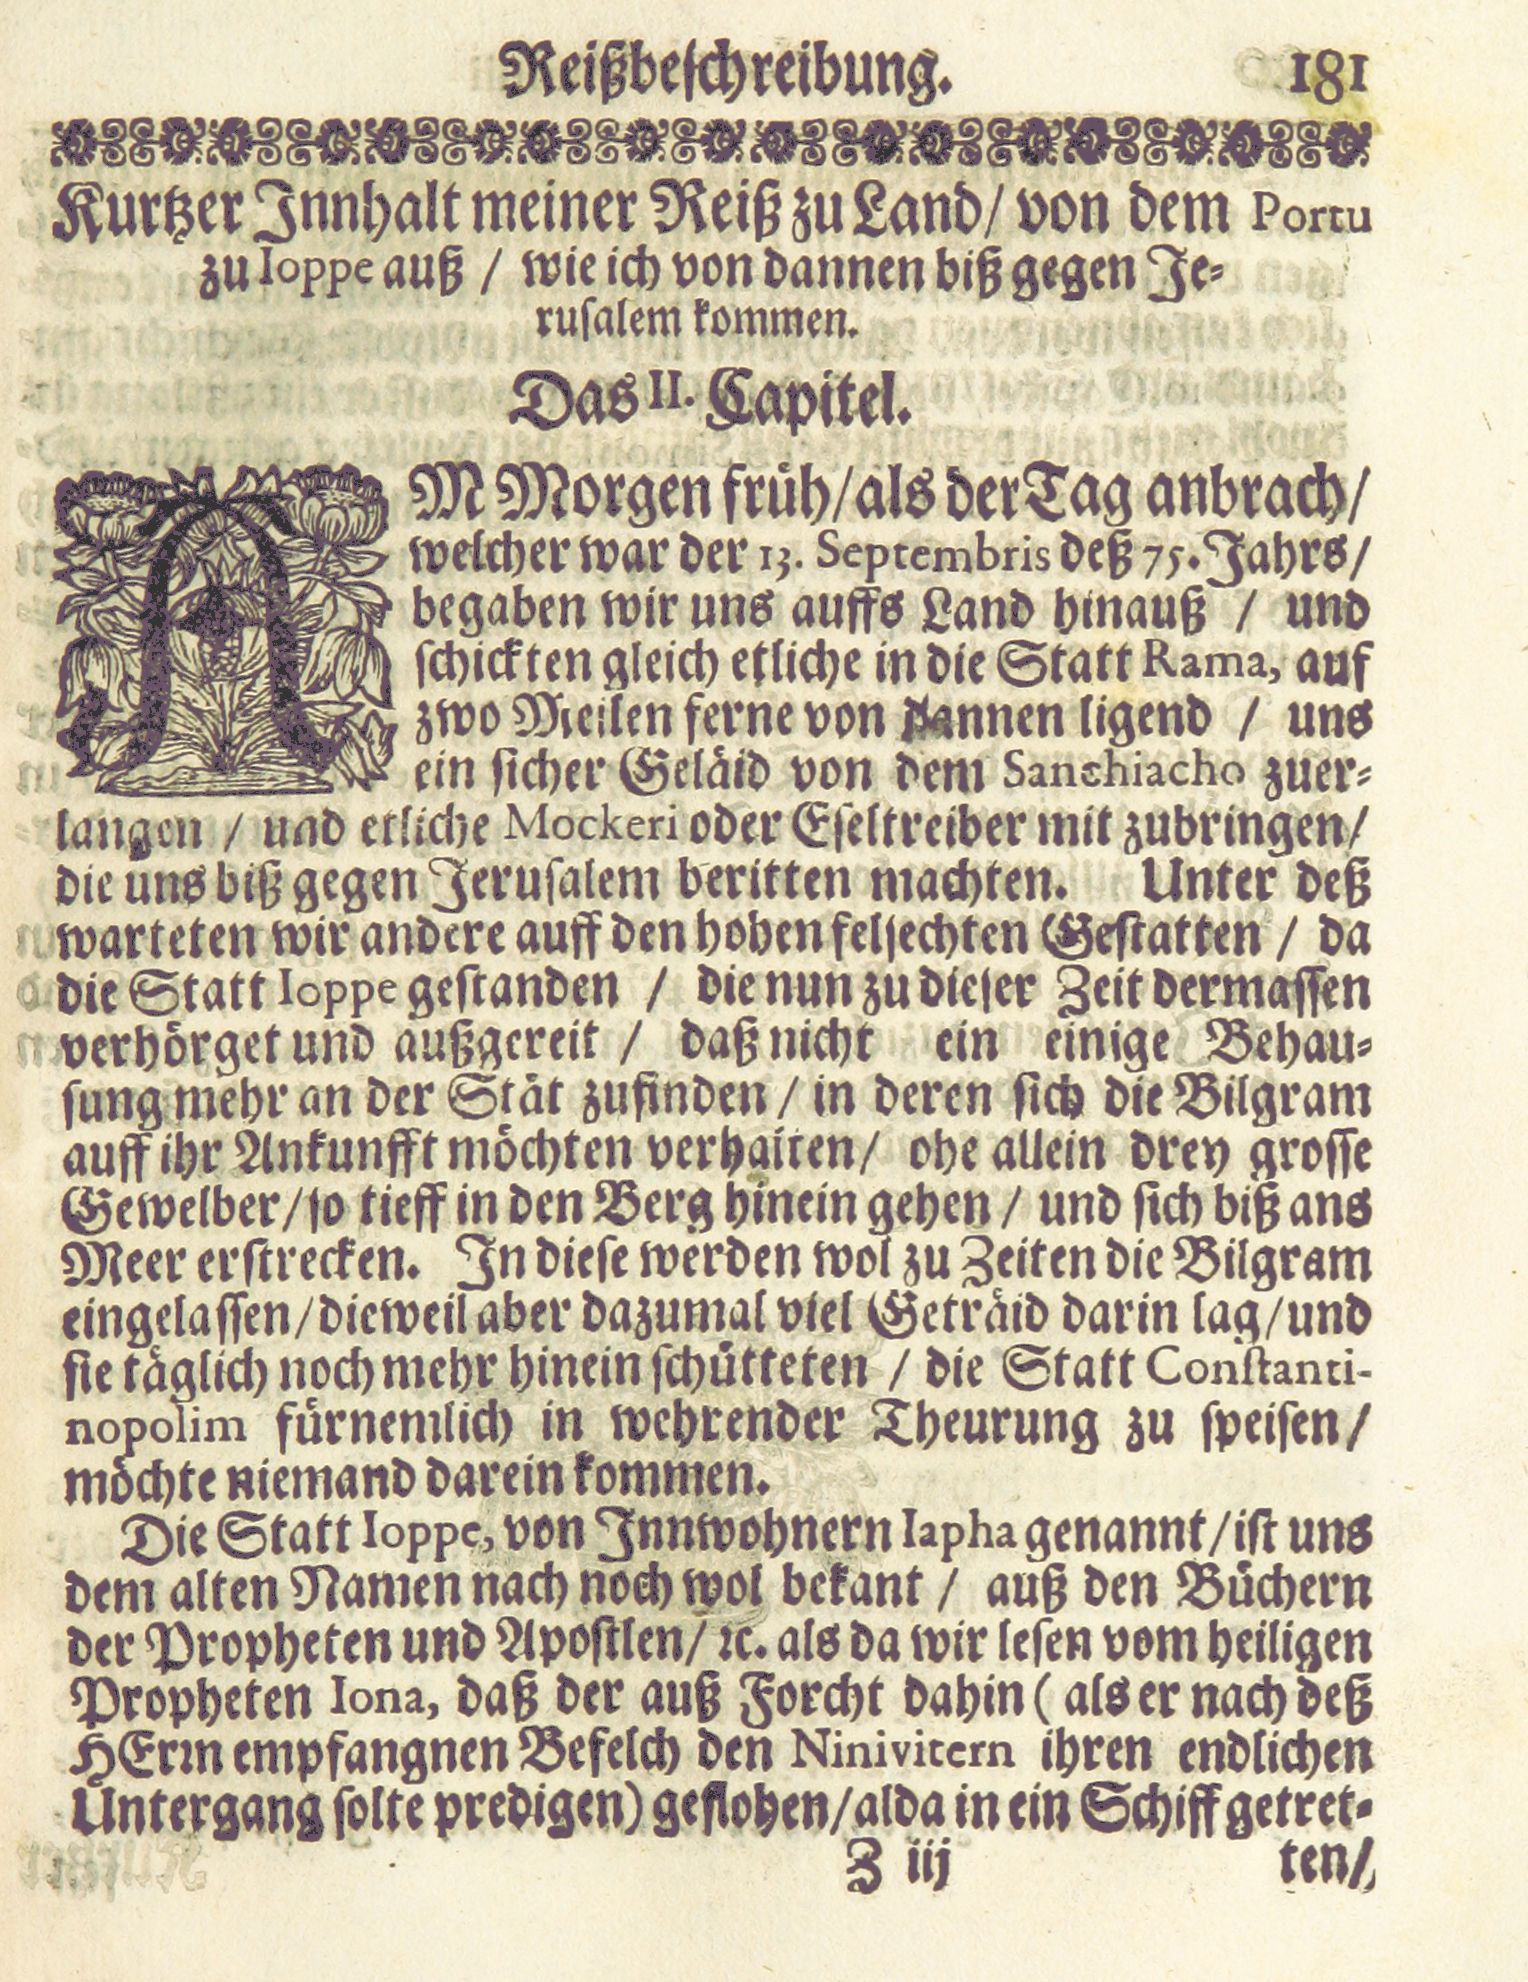 Reißbeschreibung. 181
Kurtzer Innhalt meiner Reiß zu Land/ von dem Portu
zu Ioppe auß / wie ich von dannen biß gegen Je-
rusalem kommen.
Das II. Capitel.
AM Morgen früh/als der Tag anbrach/
welcher war der 13. Septembris deß 75. Jahrs/
begaben wir uns auffs Land hinauß / und
schickten gleich etliche in die Statt Rama, auf
zwo Meilen ferne von dannen ligend / uns
ein sicher Geläid von dem Sanchiacho zuer-
langen / und etliche Mockeri oder Eseltreiber mit zubringen/
die uns biß gegen Jerusalem beritten machten. Unter deß
warteten wir andere auff den hohen felsechten Gestatten / da
die Statt Ioppe gestanden / die nun zu dieser Zeit dermassen
verhörget und außgereit / daß nicht ein einige Behau-
sung mehr an der Stät zufinden / in deren sich die Bilgram
auff ihr Ankunfft möchten verhalten/ ohe allein drey grosse
Gewelber/so tieff in den Berg hinein gehen / und sich biß ans
Meer erstrecken. In diese werden wol zu Zeiten die Bilgram
eingelassen/dieweil aber dazumal viel Geträid darin lag/und
sie täglich noch mehr hinein schütteten / die Statt Constanti-
nopolim fürnemlich in wehrender Theurung zu speisen/
möchte niemand darein kommen.
Die Statt Ioppe, von Innwohnern Iapha genannt/ist uns
dem alten Namen nach noch wol bekant / auß den Büchern
der Propheten und Apostlen/ ꝛc. als da wir lesen vom heiligen
Propheten Iona, daß der auß Forcht dahin ( als er nach deß
HErrn empfangnen Befelch den Ninivitern ihren endlichen
Untergang solte predigen) geflohen/alda in ein Schiff getret-
Z iij ten/